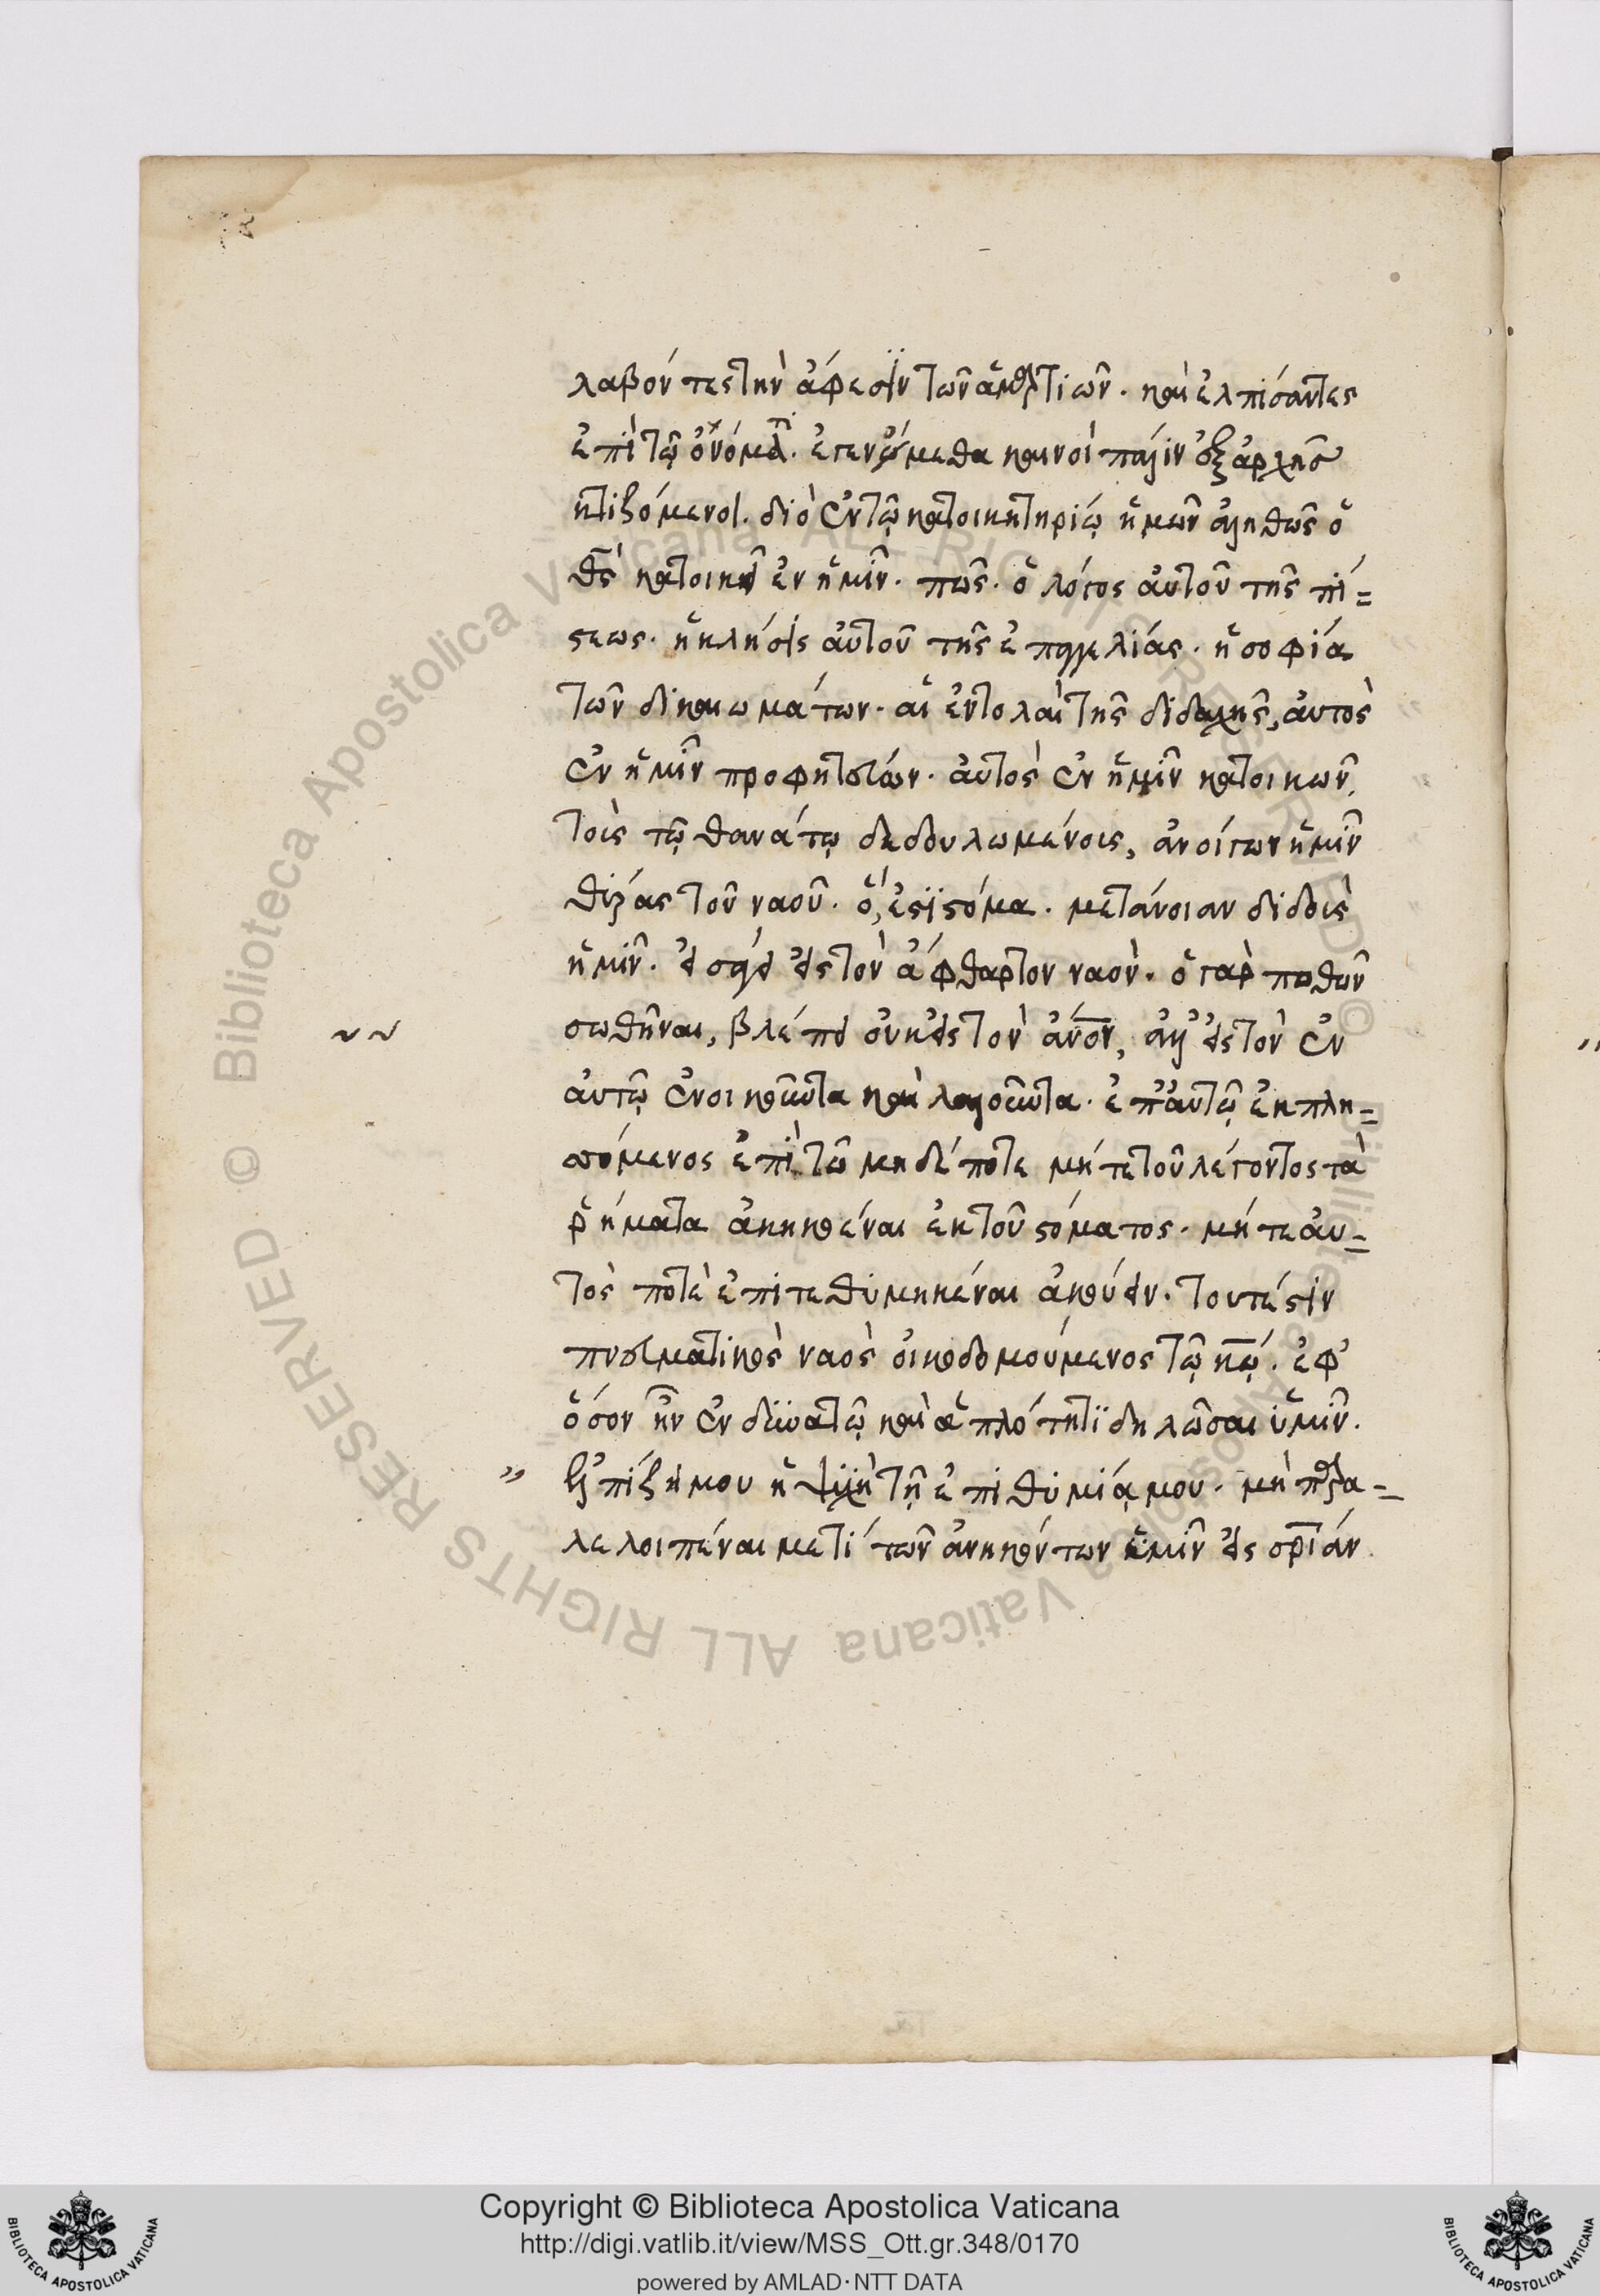 λαβόντες τὴν ἄφεσιν τῶν ἁμαρτιῶν. καὶ ἐλπίσαντες
ἐπὶ τῷ ὀνόματι. ἐγενόμεθα καινοὶ πάλιν ἐξ ἀρχῆς
κτιζόμενοι. διὸ ἐν τῷ κατοικητηρίῳ ἡμῶν ἀληθῶς ὁ
θς̅ κατοικεῖ ἐν ἡμῖν. πῶς. ὁ λόγος αὐτοῦ τῆς πί=
στεως. ἡ κλήσις αὐτοῦ τῆς ἐπαγγελίας. ἡ σοφία
τῶν δικαιωμάτων. αἱ ἐντολαὶ τῆς διδαχῆς, αὐτὸς
ἐν ἡμῖν προφητεύων. αὐτὸς ἐν ἡμῖν κατοικῶν.
τοὶς τῷ θανάτῳ δεδουλωμένοις, ἀνοίγων ἡμῖν
θύρας τοῦ ναοῦ. ὅ, ἐστὶ στόμα. μετάνοιαν διδοὺς
ἡμῖν. εἰσάγει εἰς τὸν ἄφθαρτον ναὸν. ὁ γὰρ ποθῶν
σωθῆναι, βλέπει οὐκ εἰς τὸν ἀν̅ο̅ν̅, ἀλλ' εἰς τὸν ἐν
αὐτῷ ἐνοικοῦντα καὶ λαλοῦντα. ἐπ' αὐτῷ ἐκπλη=
σσόμενος ἐπὶ τῷ μηδέποτε μήτε τοῦ λέγοντος τὰ
ῥήματα ἀκηκοέναι ἐκ τοῦ στόματος. μήτε αὐ=
τὸς ποτὲ ἐπιτεθυμηκέναι ἀκούειν. τουτέστιν
πνευματικὸς ναὸς οἰκοδομούμενος τῷ κ̅ῳ̅. ἐφ'
ὅσον ἦν ἐν δυνατῷ καὶ ἁπλότητι δηλῶσαι ὑμῖν.
" ἐλπίζει μου ἡ ψυχὴ τῇ ἐπιθυμίᾳ μου. μὴ παρα=
λελοιπέναι με τί τῶν ἀνηκόντων ἡμῖν εἰς σ̅ρ̅ίαν.
Copyright © Biblioteca Apostolica Vaticana
http://digi.vatlib.it/view/MSS_Ott.gr.348/0170
powered by AMLAD·NTT DATA
BIBLIOTECA APOSTOLICA VATICANA
BIBLIOTECA APOSTOLICA VATICANA
© Biblioteca Apostolica Vaticana ALL RIGHTS RESERVED
© Biblioteca Apostolica Vaticana ALL RIGHTS RESERVED